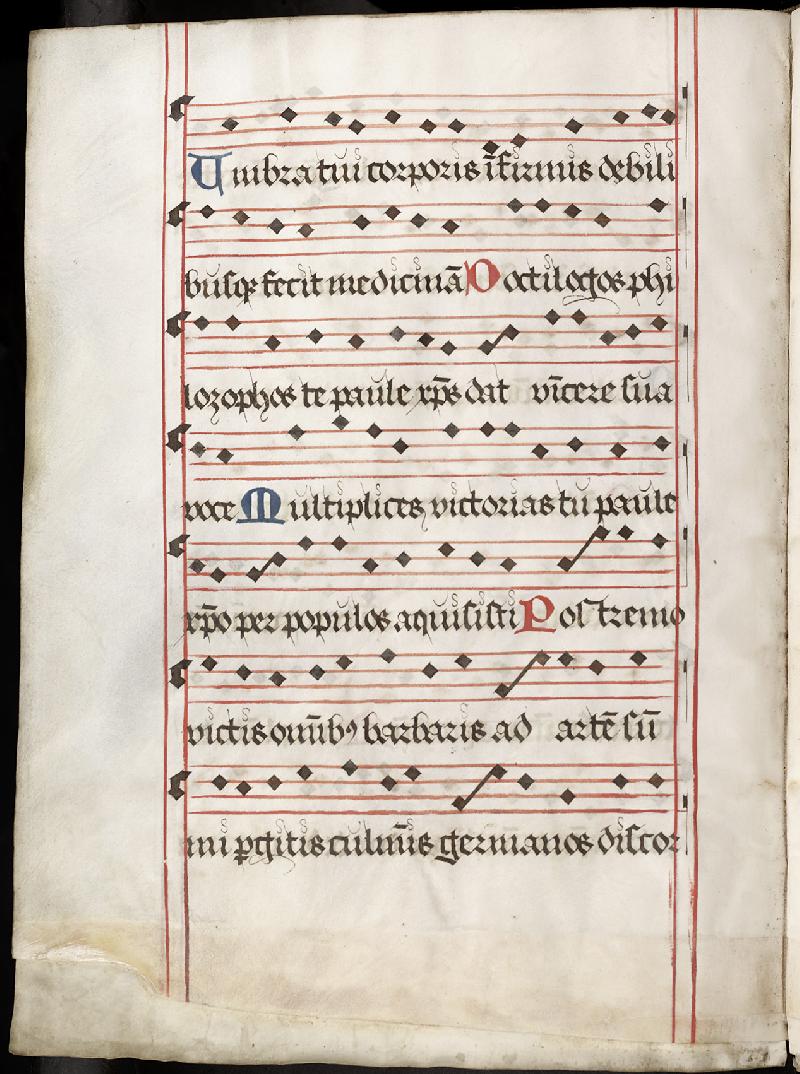 Umbra tui corporis ĩfirmis debili
busqꝫ fecit medicinã Doctilogos phi
lozophos te paule xp̃s dat vĩcere sua
voce Multiplices victorias tu paule
xp̃o per populos aquisisti Postremo
victis om̃ibꝰ barbaris ad artẽ sũ
mi ꝑgitis culmĩis germanos discor